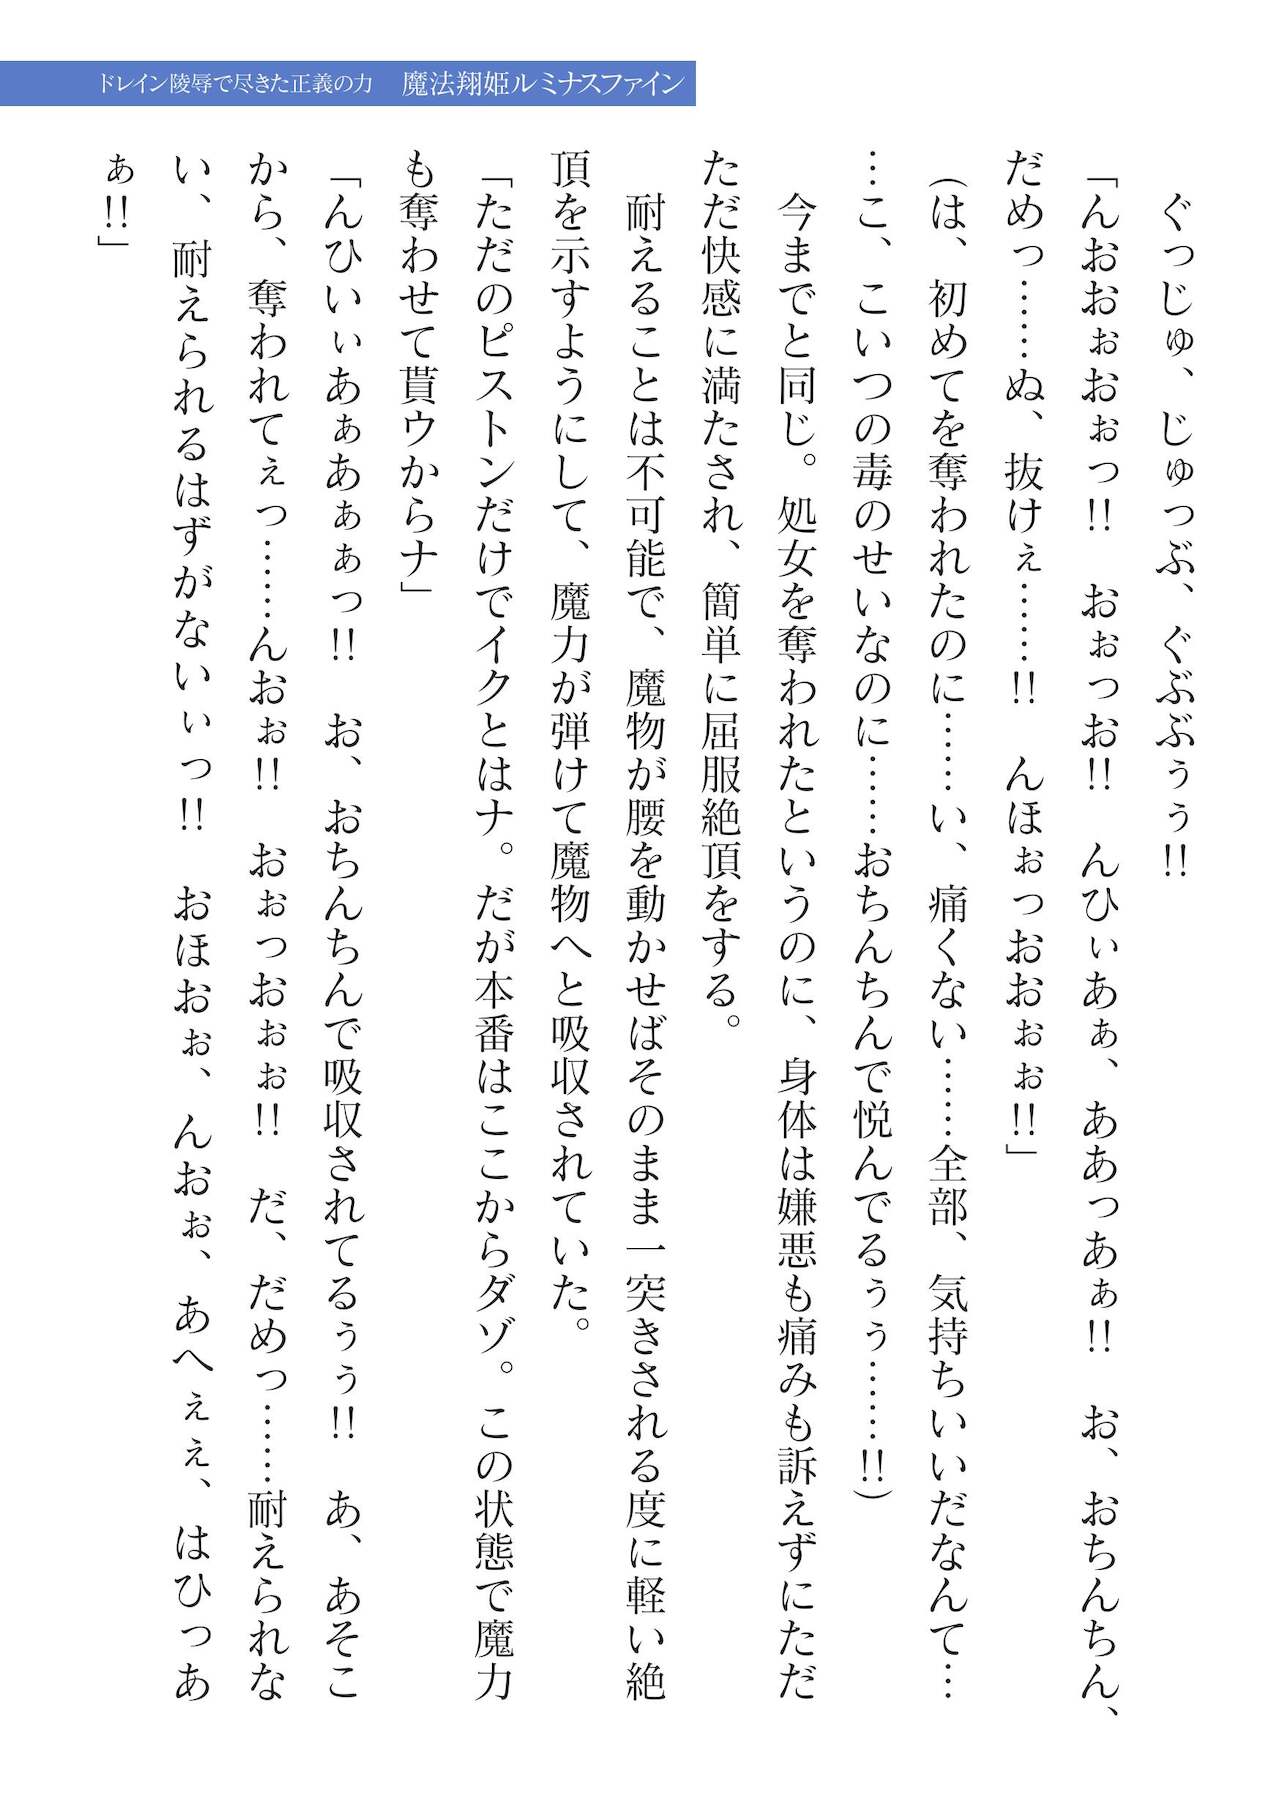 ドレイン陵辱で尽きた正義の力　魔法翔姫ルミナスファイン
　ぐっじゅ、じゅっぶ、ぐぶぶぅぅ!!
「んおおぉおぉっ!!　おぉっお!!　んひぃあぁ、ああっあぁ!!　お、おちんちん、
だめっ……ぬ、抜けぇ……!!　んほぉっおおぉぉ!!」
（は、初めてを奪われたのに……い、痛くない……全部、気持ちいいだなんて…
…こ、こいつの毒のせいなのに……おちんちんで悦んでるぅぅ……!!）
　今までと同じ。処女を奪われたというのに、身体は嫌悪も痛みも訴えずにただ
ただ快感に満たされ、簡単に屈服絶頂をする。
　耐えることは不可能で、魔物が腰を動かせばそのまま一突きされる度に軽い絶
頂を示すようにして、魔力が弾けて魔物へと吸収されていた。
「ただのピストンだけでイクとはナ。だが本番はここからダゾ。この状態で魔力
も奪わせて貰ウからナ」
「んひいぃあぁあぁぁっ!!　お、おちんちんで吸収されてるぅぅ!!　あ、あそこ
から、奪われてぇっ……んおぉ!!　おぉっおぉぉ!!　だ、だめっ……耐えられな
い、耐えられるはずがないぃっ!!　おほおぉ、んおぉ、あへぇぇ、はひっあ
ぁ!!」